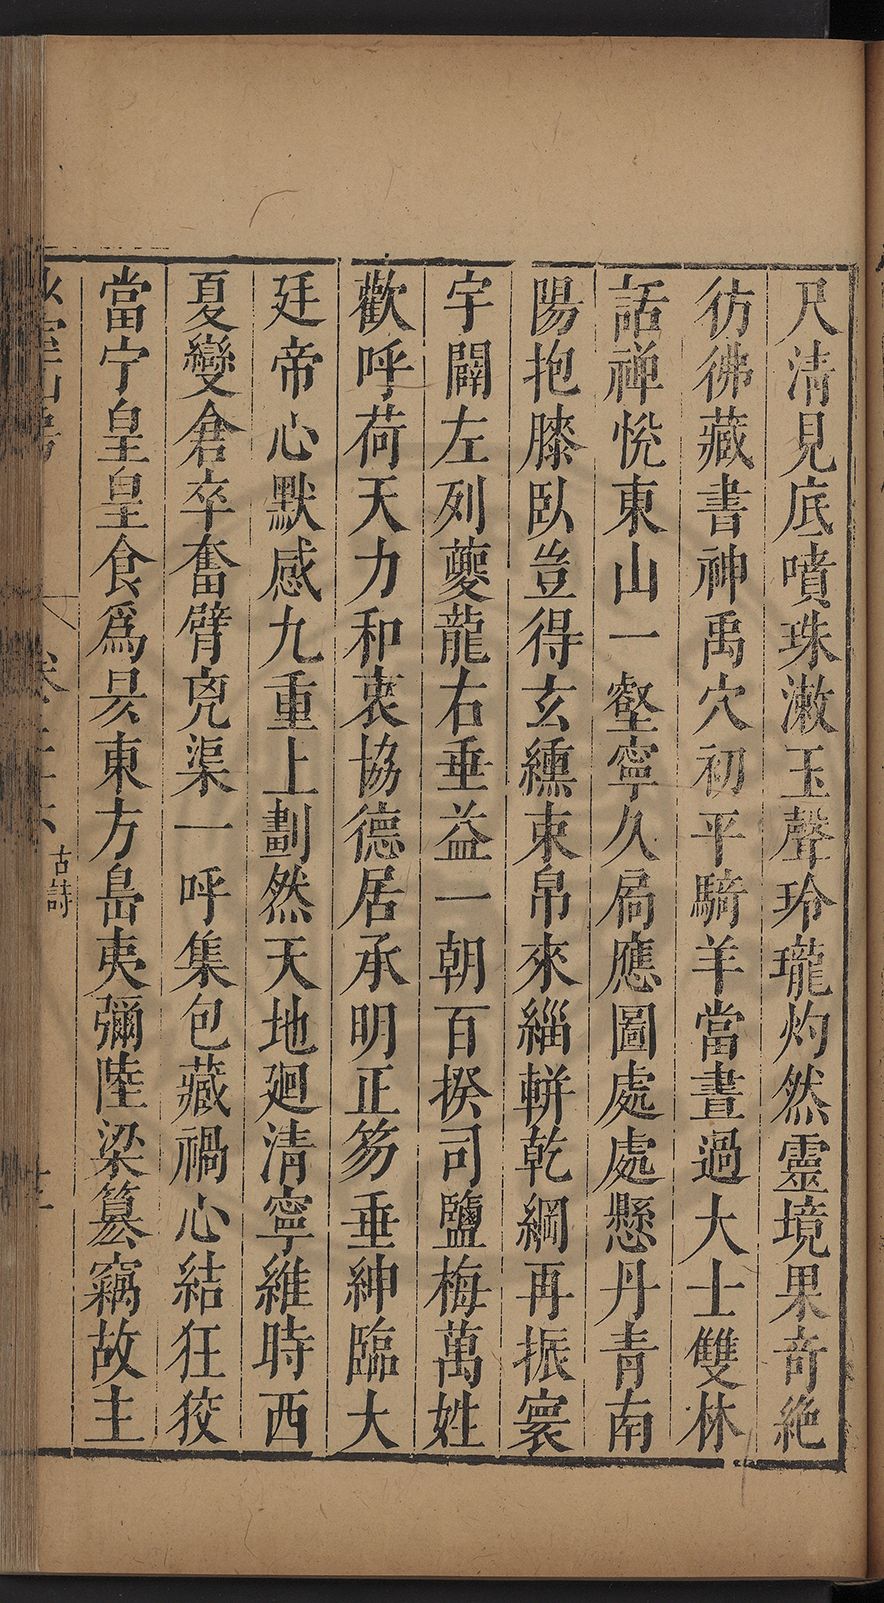 尺清見底噴珠漱玉聲玲瓏灼然靈境果奇絶
彷彿藏書神禹穴初平騎羊當晝過大士雙林
話禅悅東山一壑寧久局應圖處處懸丹青南
陽抱膝臥豈得玄纁束帛來緇軿乾綱再振寰
宇闢左列夔龍右垂益一朝百揆司鹽梅萬姓
歡呼荷天力和衷協德居承明正笏垂紳臨大
廷帝心默感九重上劃然天地廻清寧維時西
夏變倉卒奮臂兇渠一呼集包藏禍心結狂狡
當宁皇皇食爲昃東方島夷彌陸梁篡竊故主
古詩